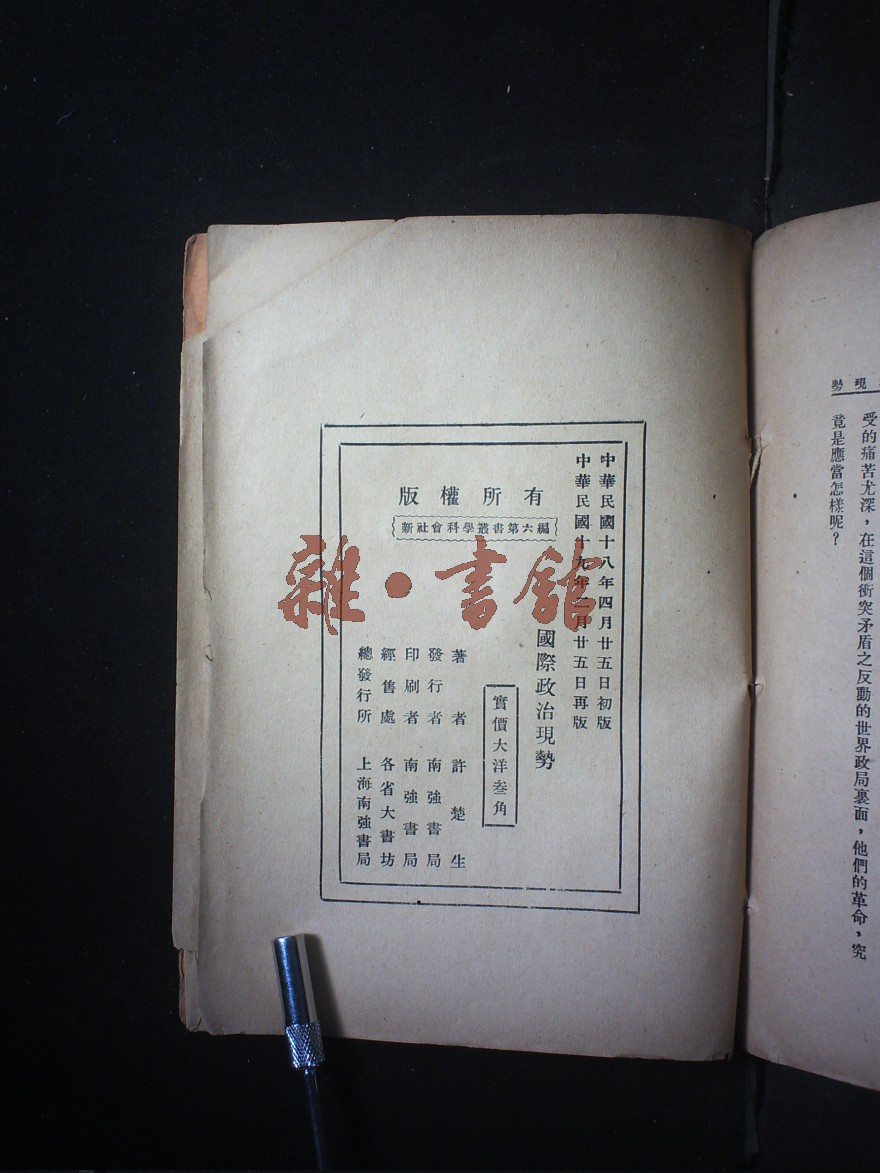 現勢
受的痛苦尤深，在這個衝突矛盾之反動的世界政局裏面，他們的革命，究
竟是應當怎樣呢？
中華民國十八年四月廿五日初版
中華民國十九年二月廿五日再版
版權所有
新社會科學叢書第六編
國際政治現勢
實價大洋叁角
著者 許楚生
發行者 南強書局
印刷者 南強書局
經售處 各省大書坊
總發行所 上海南強書局
雜·書館